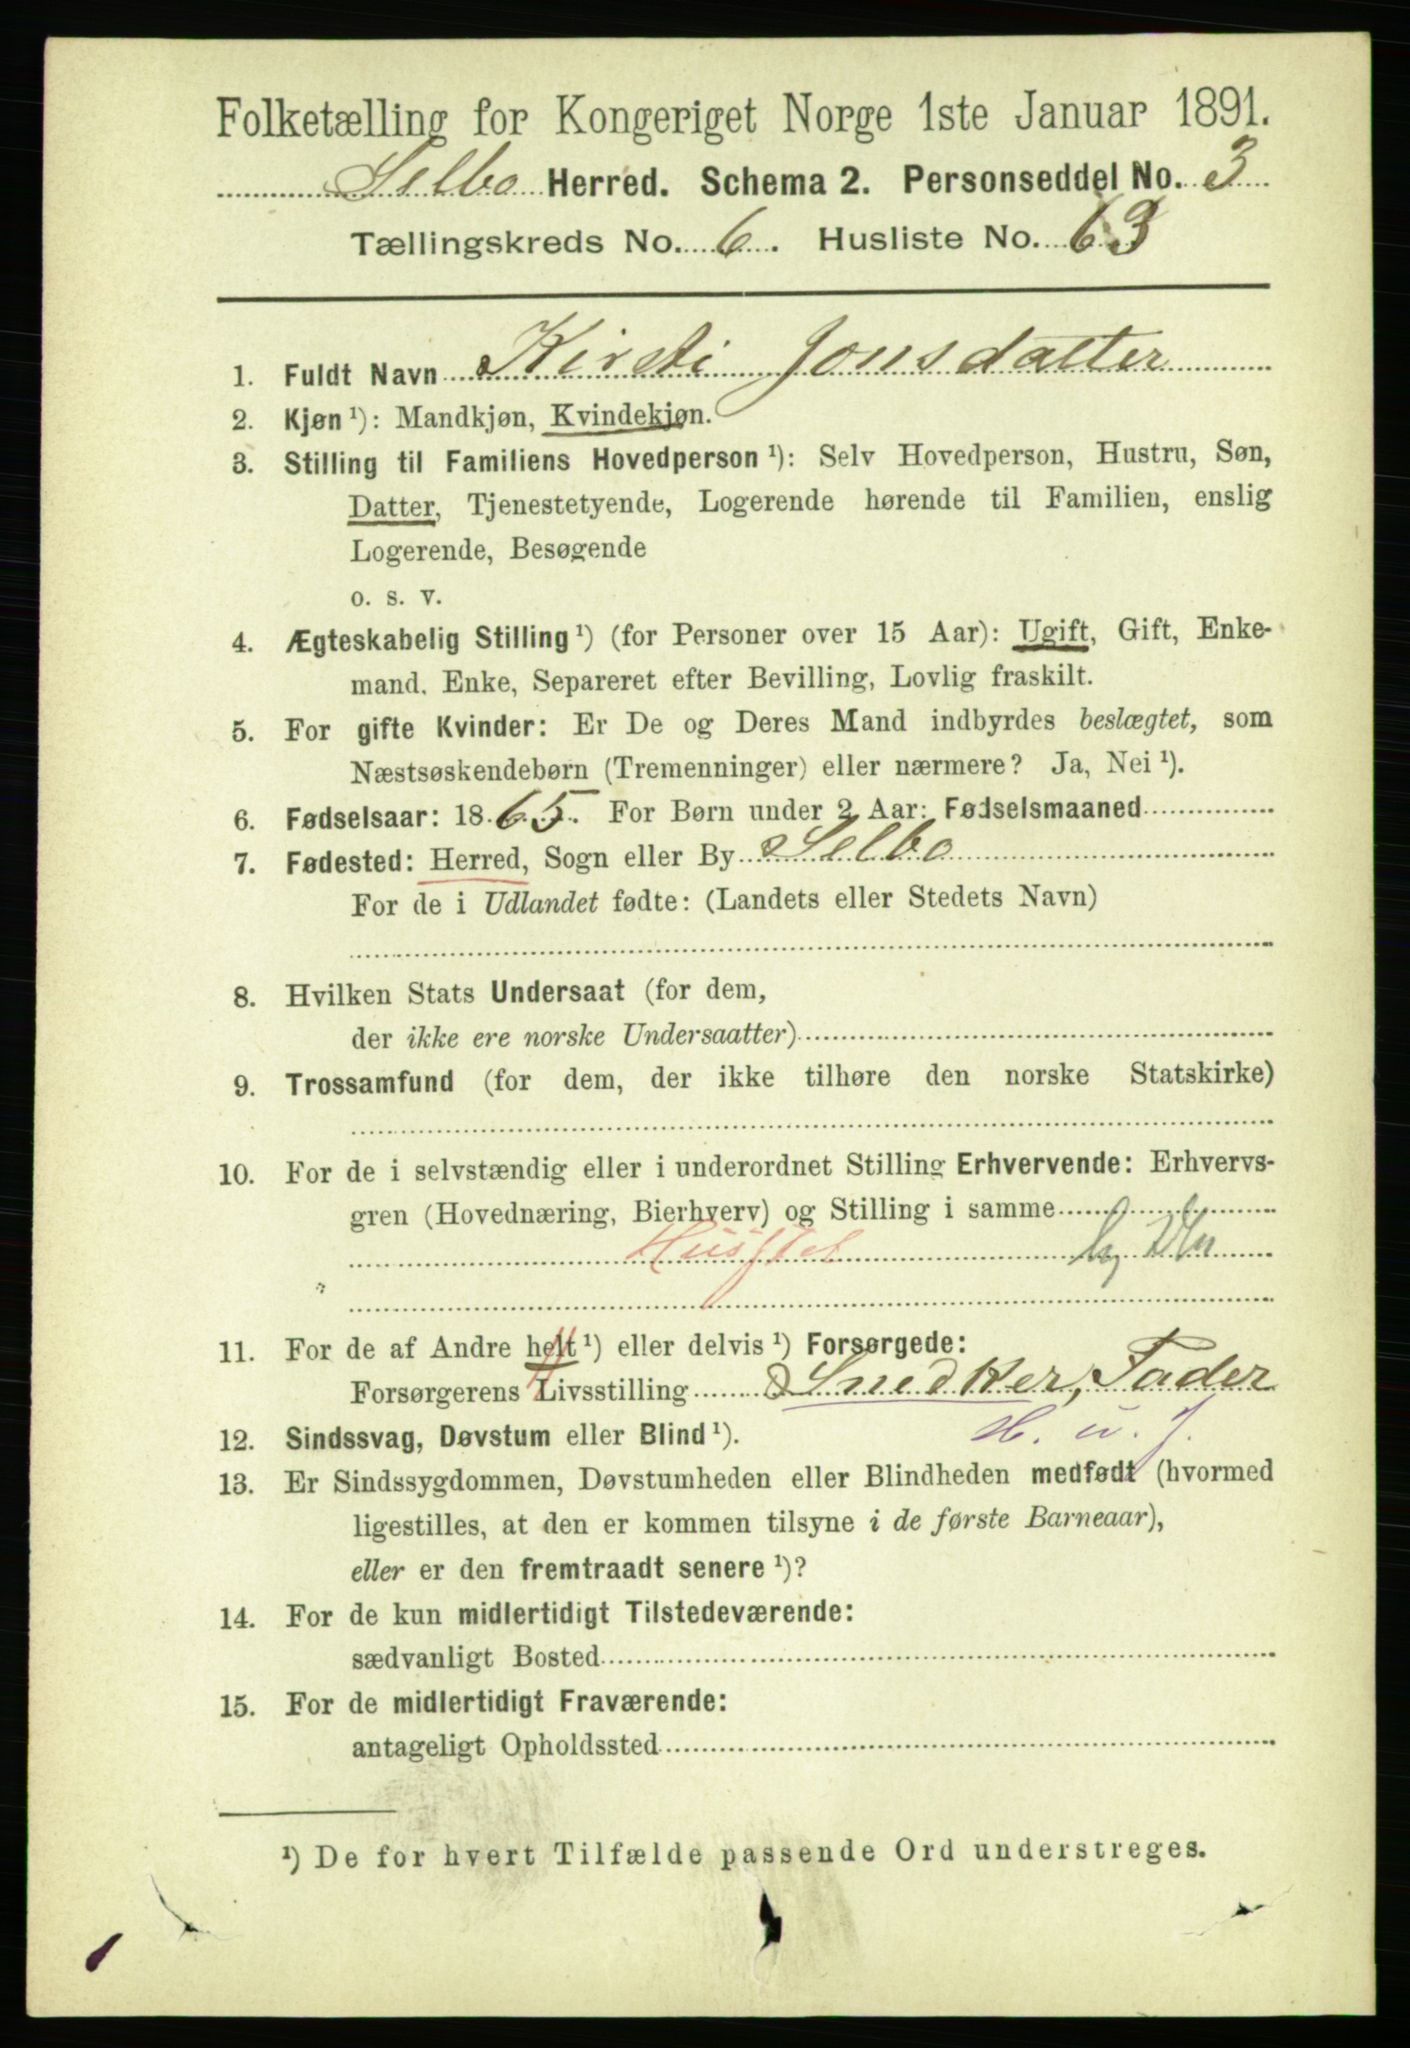 Folketælling for Kongeriget Norge 1ste Januar 1891.
Selbo Herred. Schema 2. Personseddel No. 3
Tællingskreds No. 6. Husliste No. 63
1. Fuldt Navn Kirsti Jonsdatter
2. Kjøn ¹): Mandkjøn, Kvindekjøn.
3. Stilling til Familiens Hovedperson ¹): Selv Hovedperson, Hustru, Søn,
Datter, Tjenestetyende, Logerende hørende til Familien, enslig
Logerende, Besøgende
o. s. v.
4. Ægteskabelig Stilling ¹) (for Personer over 15 Aar): Ugift, Gift, Enke-
mand, Enke, Separeret efter Bevilling, Lovlig fraskilt.
5. For gifte Kvinder: Er De og Deres Mand indbyrdes beslægtet, som
Næstsøskendebørn (Tremenninger) eller nærmere? Ja, Nei ¹).
6. Fødselsaar: 1865. For Børn under 2 Aar: Fødselsmaaned
7. Fødested: Herred, Sogn eller By Selbo
For de i Udlandet fødte: (Landets eller Stedets Navn)
8. Hvilken Stats Undersaat (for dem,
der ikke ere norske Undersaatter)
9. Trossamfund (for dem, der ikke tilhøre den norske Statskirke)
10. For de i selvstændig eller i underordnet Stilling Erhvervende: Erhvervs-
gren (Hovednæring, Bierhverv) og Stilling i samme
Husstel
11. For de af Andre helt ¹) eller delvis ¹) Forsørgede:
Forsørgerens Livsstilling Snedker, Fader
12. Sindssvag, Døvstum eller Blind ¹).
13. Er Sindssygdommen, Døvstumheden eller Blindheden medfødt (hvormed
ligestilles, at den er kommen tilsyne i de første Barneaar),
eller er den fremtraadt senere ¹)?
14. For de kun midlertidigt Tilstedeværende:
sædvanligt Bosted
15. For de midlertidigt Fraværende:
antageligt Opholdssted
¹) De for hvert Tilfælde passende Ord understreges.